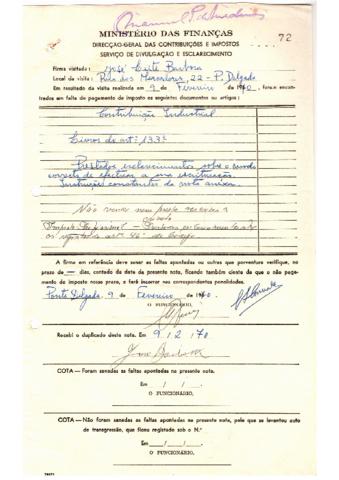 72
MINISTÉRIO DAS FINANÇAS
DIRECÇÃO-GERAL DAS CONTRIBUIÇÕES E IMPOSTOS
SERVIÇO DE DIVULGAÇÃO E ESCLARECIMENTO
Firma visitada: José Leite Barbosa
Local da visita: Rua dos Mercadores, 22 - P. Delgada
Em resultado da visita realizada em 9 de Fevereiro de 1970, foram encontradas em falta de pagamento de imposto os seguintes documentos ou artigos:
Contribuição Industrial
Livros do artº 133º
Prestados esclarecimentos sobre o modo
correcto de efectuar a sua escrituração.
Instruções constantes da nota anexa.
Não
A firma em referência deve sanar as faltas apontadas ou outras que porventura verifique, no
prazo de — dias, contado da data da presente nota, ficando também ciente de que o não paga-
mento do imposto nesse prazo, a fará incorrer nas correspondentes penalidades.
Ponta Delgada, 9 de Fevereiro de 1970.
O FUNCIONÁRIO,
Recebi o duplicado desta nota. Em 9/2/70
José Barbosa
COTA — Foram sanadas as faltas apontadas na presente nota.
Em / /
O FUNCIONÁRIO,
COTA — Não foram sanadas as faltas apontadas na presente nota, pelo que se levantou auto
de transgressão, que ficou registado sob o N.º
Em / /
O FUNCIONÁRIO,